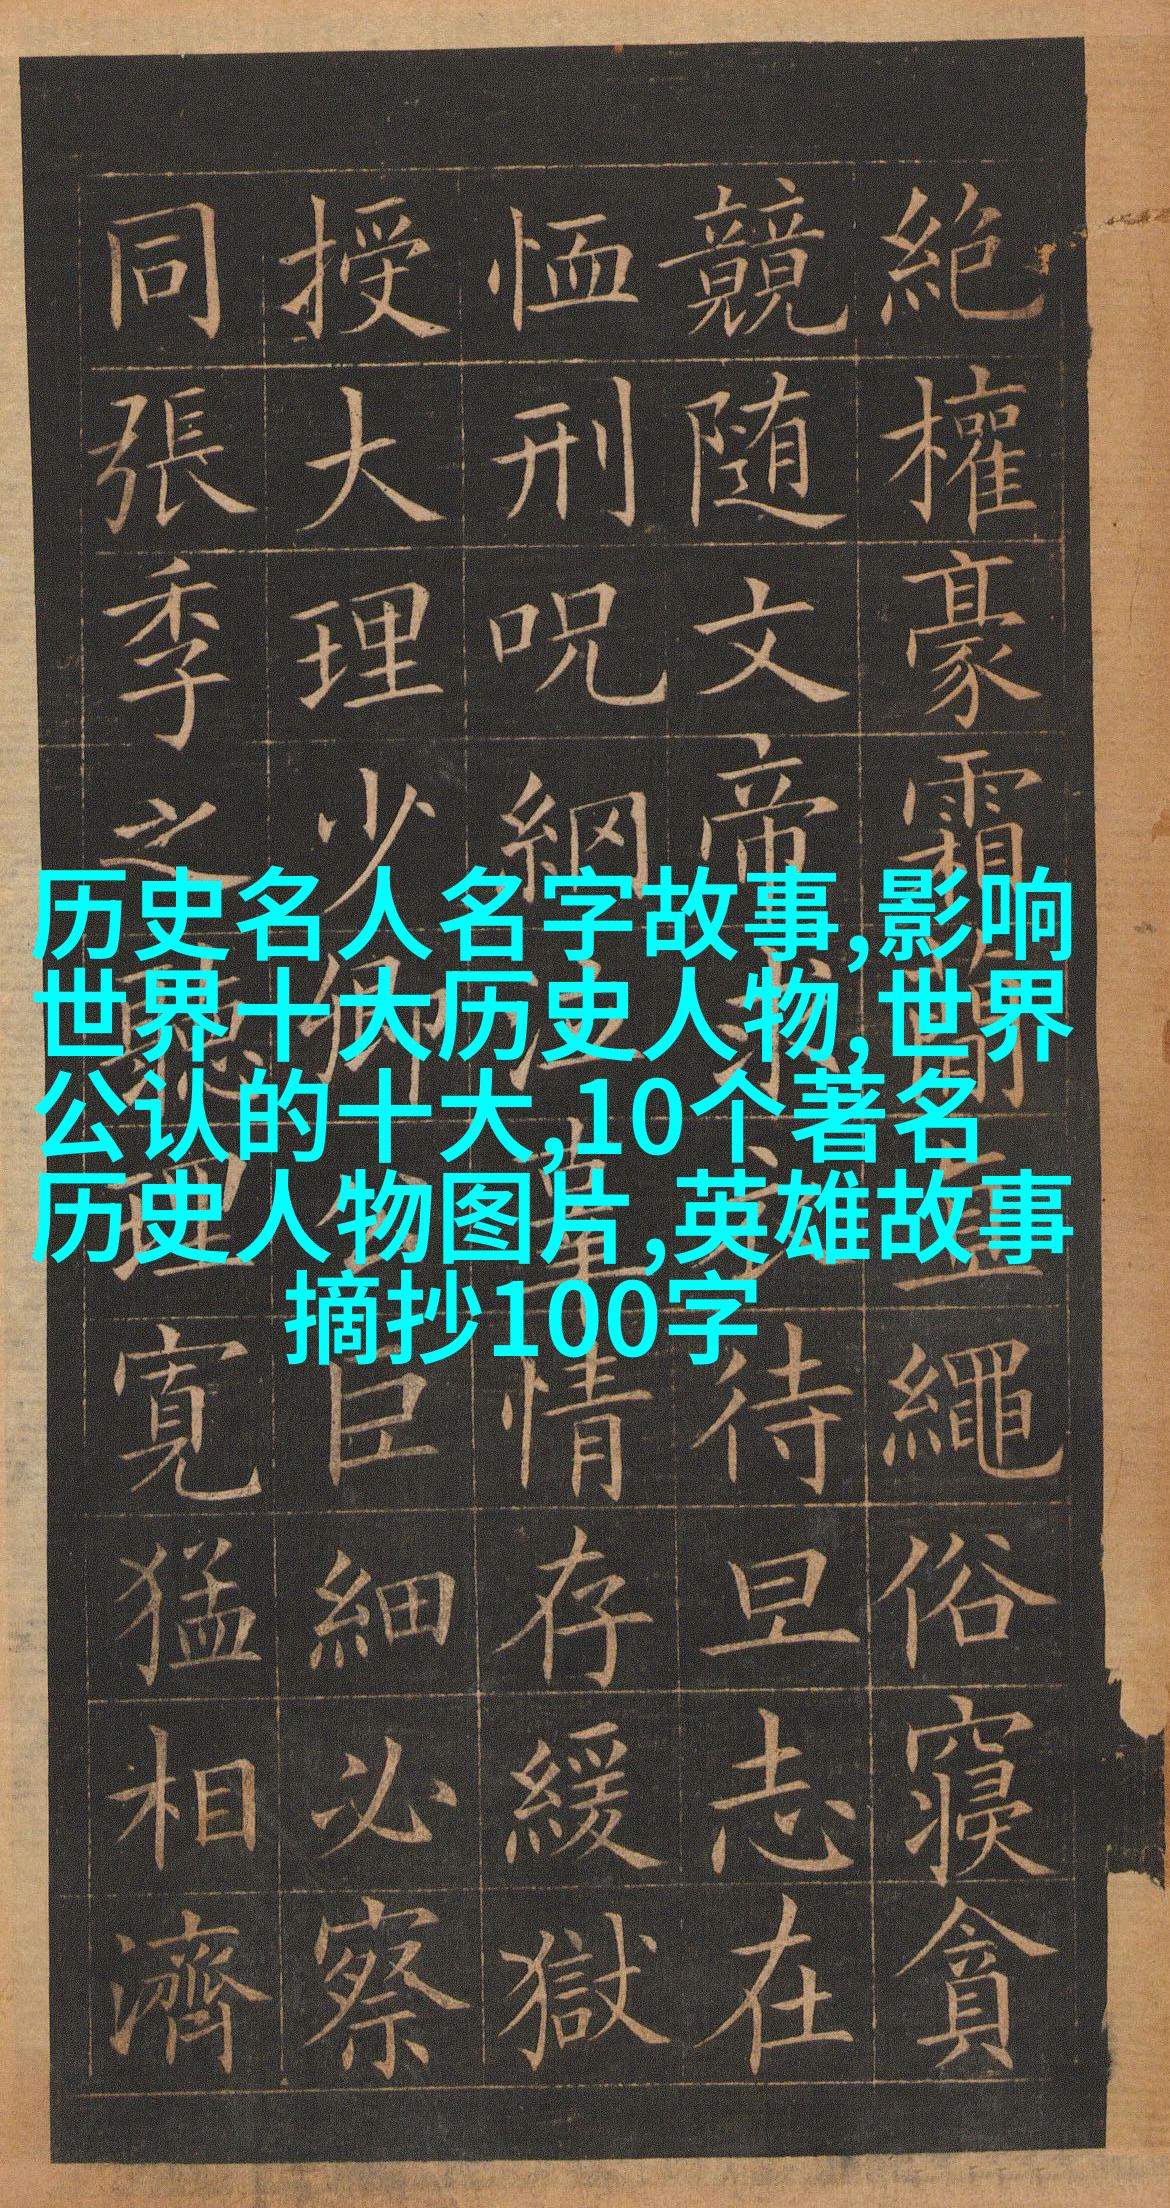 历史名人名字故事,影响
世界十大历史人物,世界
公认的十大,10个著名
历史人物图片,英雄故事
摘抄100字
絶權豪霜簡直繩俗寢貪
競随文帝求衣待旦志在
恤刑呪網泣辜情存緩獄
授大理少卿公巨細必察
同張季之聽理寛猛相濟